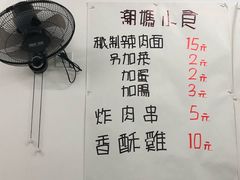 潮媽小食
秘制辣肉面 15元
另加菜 2元
加蛋 2元
加腸 3元
炸肉串 5元
香酥雞 10元